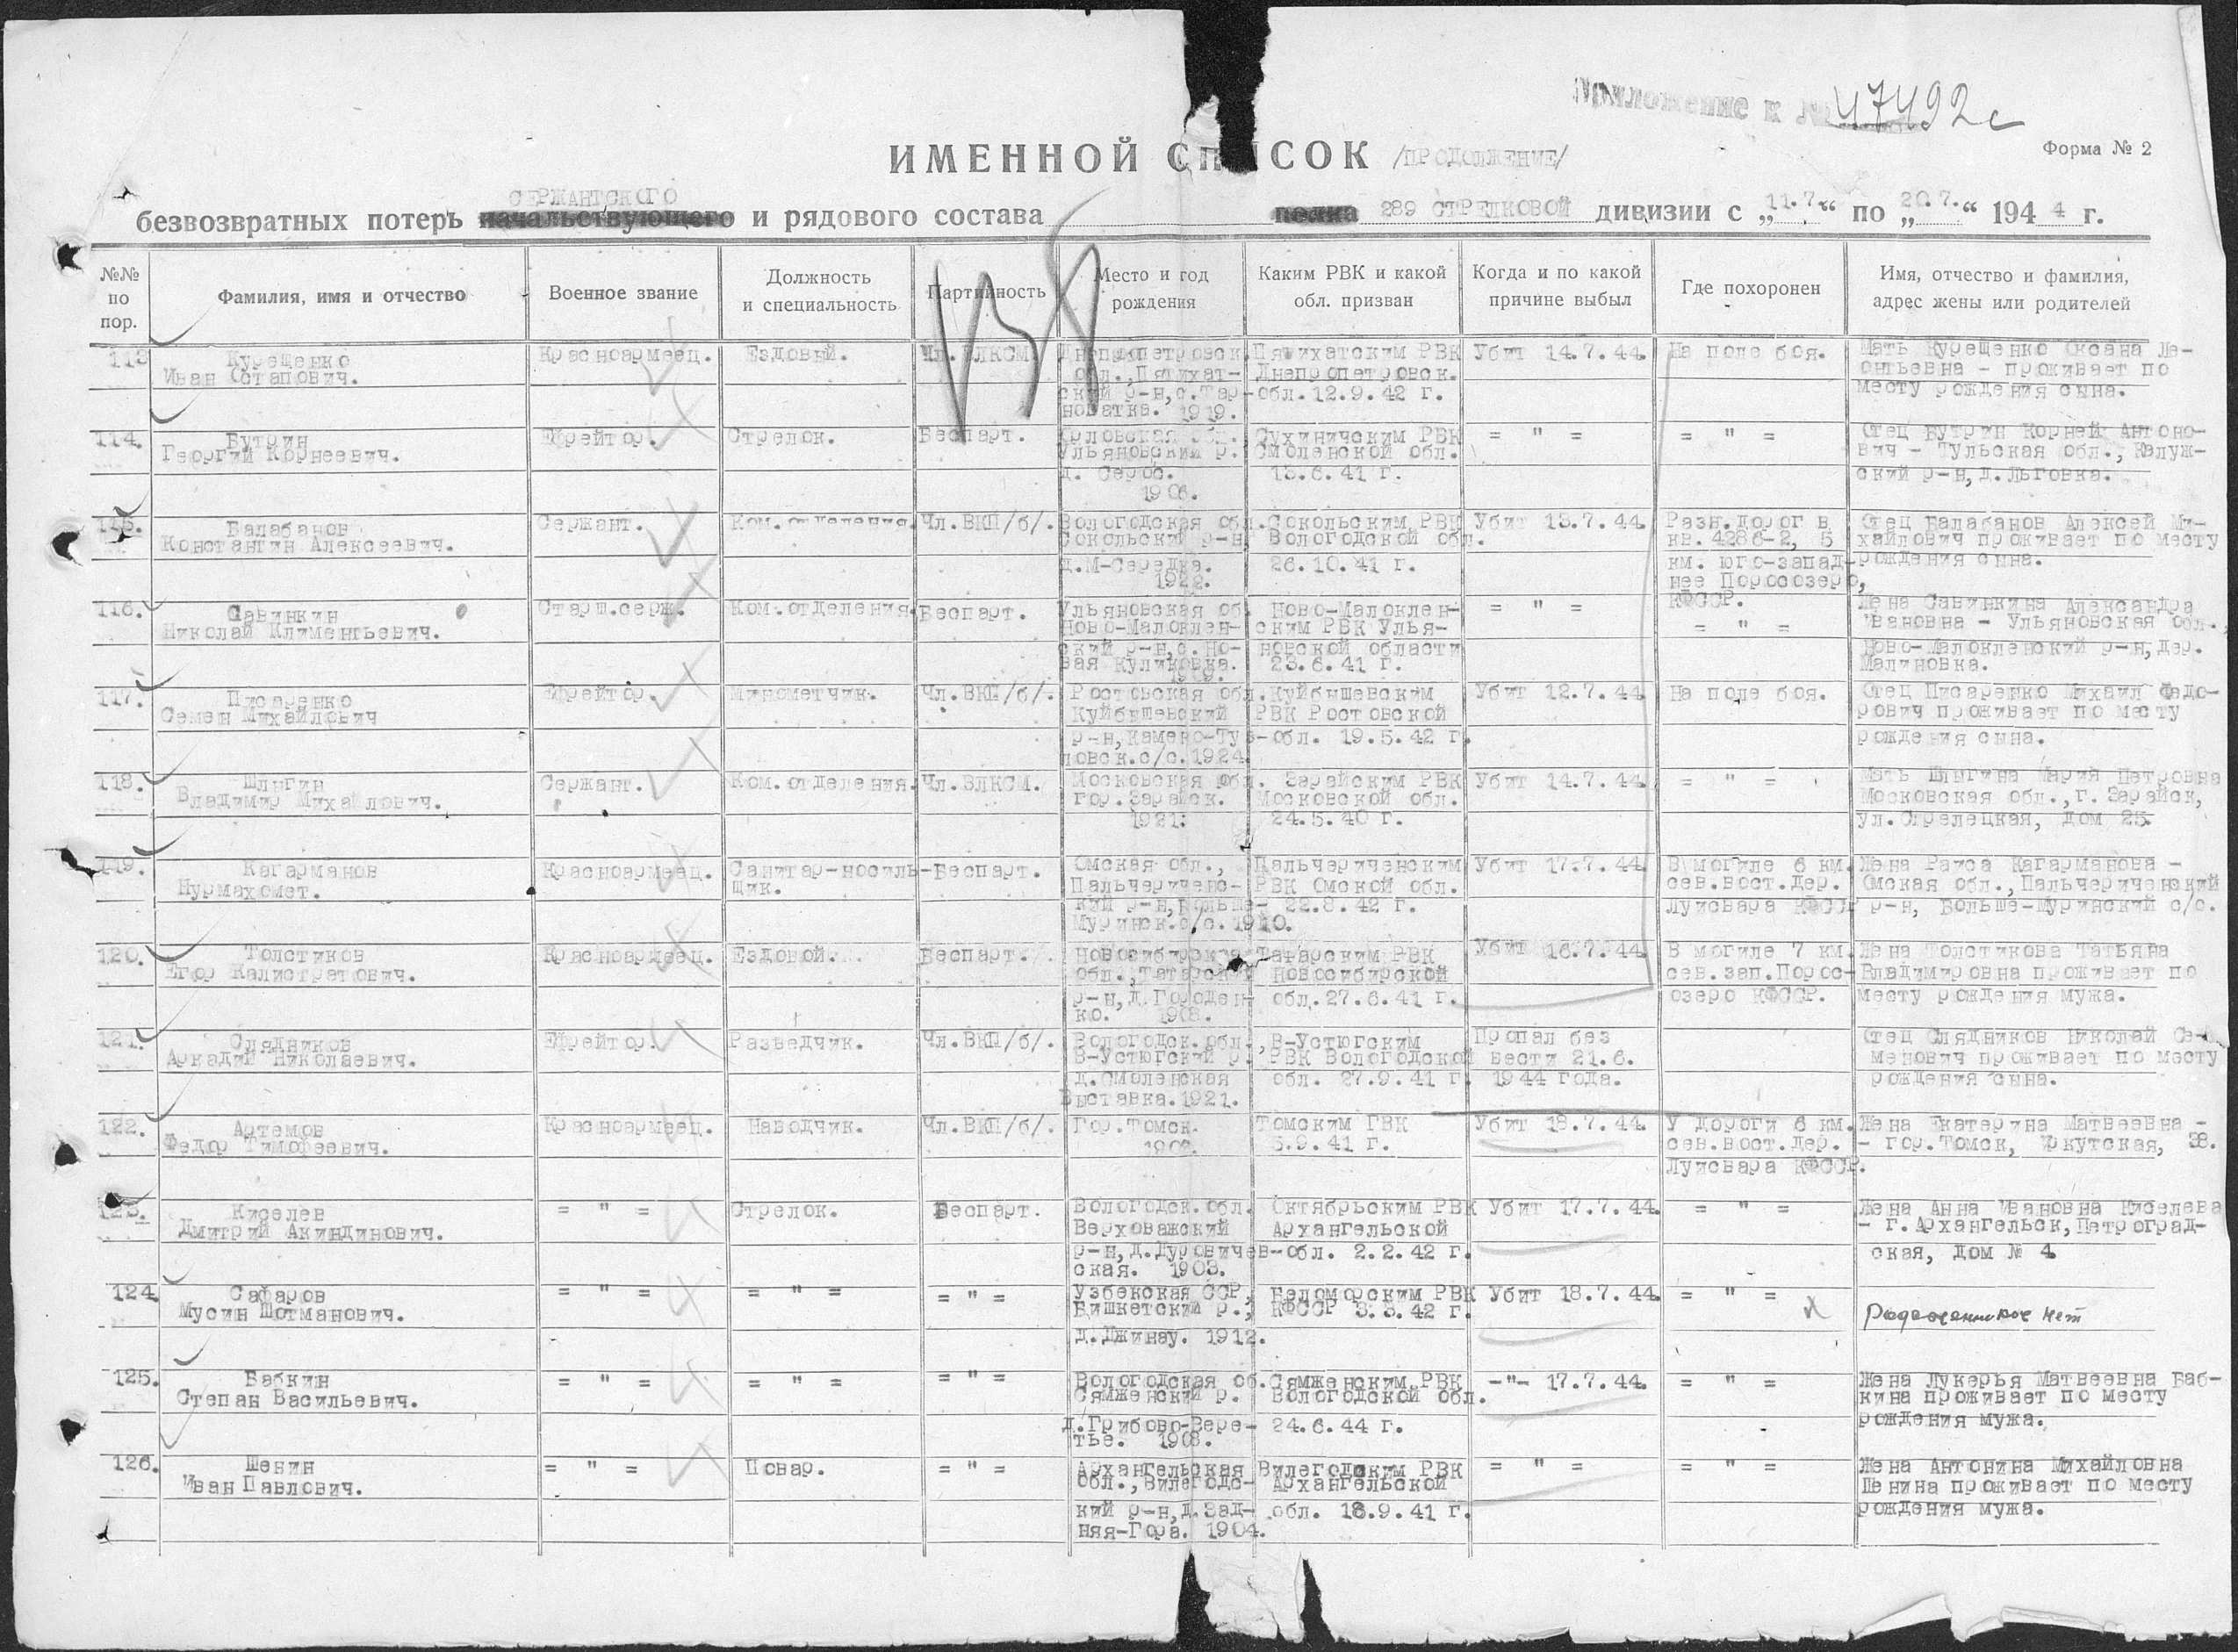 Приложение к № 47492с
ИМЕННОЙ СПИСОК /ПРОДОЛЖЕНИЕ/
Форма № 2
СЕРЖАНТСКОГО
безвозвратных потерь начальствующего и рядового состава полка 289 СТРЕЛКОВОЙ дивизии с „11.7.“ по „20.7.“ 1944 г.
№№ по пор.
Фамилия, имя и отчество
Военное звание
Должность и специальность
Партийность
Место и год рождения
Каким РВК и какой обл. призван
Когда и по какой причине выбыл
Где похоронен
Имя, отчество и фамилия, адрес жены или родителей
113 Курещенко Красноармеец. Ездовый. Чл.ВЛКСМ Днепропетровск Пятихатским РВК Убит 14.7.44. На поле боя. Мать Курещенко Оксана Ле-
Иван Остапович. обл.,Пятихат- Днепропетровск. онтьевна - проживает по
ский р-н,с.Тар- обл.12.9.42 г. месту рождения сына.
новатка. 1919.
114. Бутрин Ефрейтор. Стрелок. Беспарт. Орловская обл. Сухиничским РВК = " = = " = Отец Бутрин Корней Антоно-
Георгий Корнеевич. Ульяновский р. Смоленской обл. вич - Тульская обл., Калуж-
13.6.41 г. ский р-н,д.Льговка.
1906.
115. Балабанов Сержант. Ком.отделения. Чл.ВКП/б/. Вологодская обл. Сокольским РВК Убит 13.7.44. Разн.дорог в Отец Балабанов Алексей Ми-
Константин Алексеевич. Сокольский р-н Вологодской обл. кв. 4286-2, 5 хайлович проживает по месту
д.М-Середка. 26.10.41 г. км. юго-запад- рождения сына.
1922. нее Поросозеро,
КФССР.
116. Савинкин Старш.серж. Ком.отделения. Беспарт. Ульяновская об. Ново-Малоклен- = " = = " = Жена Савинкина Александра
Николай Климентьевич. Ново-Малоклен- ским РВК Улья- Ивановна - Ульяновская обл.,
ский р-н,с.Но- новской области Ново-Малокленский р-н,дер.
вая Куликовка. 23.6.41 г. Малиновка.
1909.
117. Писаренко Ефрейтор. Минометчик. Чл.ВКП/б/. Ростовская обл. Куйбышевским Убит 12.7.44 На поле боя. Отец Писаренко Михаил Федо-
Семен Михайлович Куйбышевский РВК Ростовской рович проживает по месту
р-н,Камено-Туз- обл. 19.5.42 г. рождения сына.
ловск.с/с.1924.
118. Шлыгин Сержант. Ком.отделения. Чл.ВЛКСМ. Московская обл. Зарайским РВК Убит 14.7.44. = " = Мать Шлыгина Мария Петровна
Владимир Михайлович. гор.Зарайск. Московской обл. Московская обл.,г.Зарайск,
1921. 24.5.40 г. ул.Стрелецкая, дом 25.
119. Кагарманов Красноармеец. Санитар-носиль- Беспарт. Омская обл., Пальчериченским Убит 17.7.44. В могиле 6 км. Жена Раиса Кагарманова -
Нурмахомет. щик. Пальчериченс- РВК Омской обл. сев.вост.дер. Омская обл.,Пальчериченский
кий р-н,Больше- 22.8.42 г. Луисвара КФССР р-н, Больше-Муринский с/с.
Муринск.с/с.1910.
120. Толстиков Красноармеец. Ездовой. Беспарт. Новосибирская Татарским РВК Убит 16.7.44. В могиле 7 км. Жена Толстикова Татьяна
Егор Калистратович. обл.,Татарский Новосибирской сев.зап.Порос- Владимировна проживает по
р-н,д.Городен- обл.27.6.41 г. озеро КФССР. месту рождения мужа.
ко. 1908.
121. Слядников Ефрейтор. Разведчик. Чл.ВКП/б/. Вологодск.обл., В-Устюгским Пропал без Отец Слядников Николай Се-
Аркадий Николаевич. В-Устюгский р. РВК Вологодской вести 21.6. менович проживает по месту
д.Смоленская обл. 27.9.41 г. 1944 года. рождения сына.
Выставка.1921.
122. Артемов Красноармеец. Наводчик. Чл.ВКП/б/. Гор.Томск. Томским ГВК Убит 18.7.44. У дороги 6 км. Жена Екатерина Матвеевна -
Федор Тимофеевич. 5.9.41 г. сев.вост.дер. - гор.Томск, Иркутская, 38.
Луисвара КФССР.
123. Киселев = " = Стрелок. Беспарт. Вологодск.обл. Октябрьским РВК Убит 17.7.44. = " = Жена Анна Ивановна Киселева
Дмитрий Акиндинович. Верховажский Архангельской - г.Архангельск,Петроград-
р-н,д.Дуровичев- обл. 2.2.42 г. ская, дом № 4
ская. 1903.
124. Сафаров = " = = " = = " = Узбекская ССР, Беломорским РВК Убит 18.7.44. = " = Родственников нет
Мусин Шотманович. Бишкетский р., КФССР 3.3.42 г.
д.Джинау. 1912.
125. Бабкин = " = = " = = " = Вологодская об. Сямженским РВК -"- 17.7.44. = " = Жена Лукерья Матвеевна Баб-
Степан Васильевич. Сямженский р. Вологодской обл. кина проживает по месту
д.Грибово-Вере- 24.6.44 г. рождения мужа.
тье. 1908.
126. Шенин = " = Повар. = " = Архангельская Вилегодским РВК = " = = " = Жена Антонина Михайловна
Иван Павлович. обл.,Вилегодс- Архангельской Шенина проживает по месту
кий р-н,д.Зад- обл. 18.9.41 г. рождения мужа.
няя-Гора. 1904.